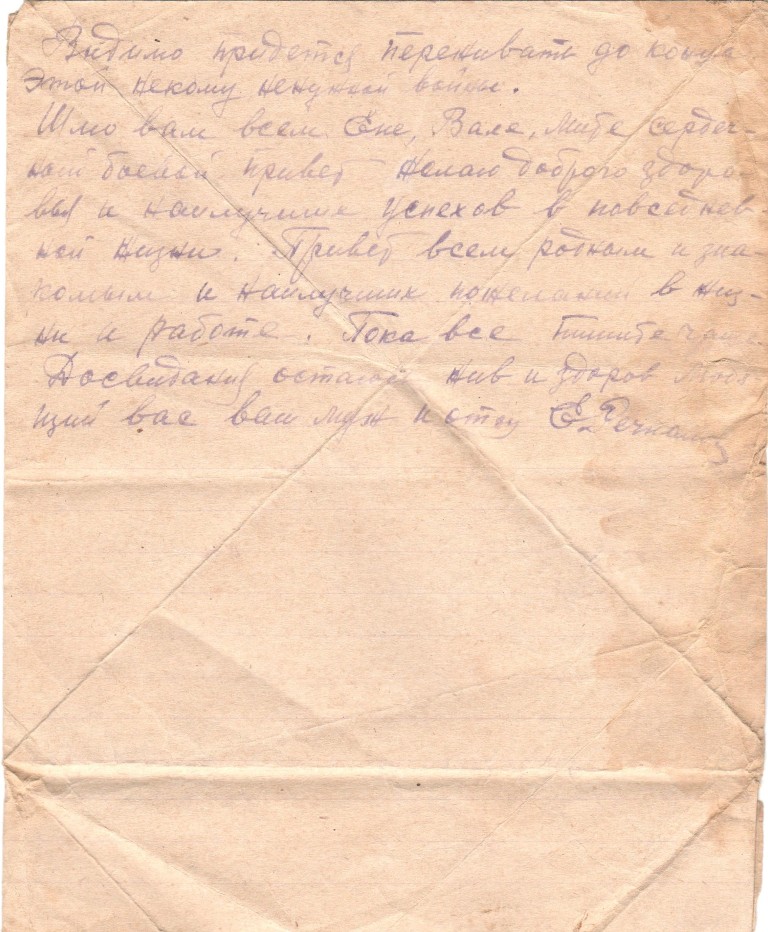 Видимо придется переживать до конца
этой некому ненужной войны.
Шлю вам всем Ене, Вале, Мите сердеч-
ный боевой привет желаю доброго здоро-
вья и наилучших успехов в повседнев-
ной жизни. Привет всем родным и зна-
комым и наилучших пожелании в жиз-
ни и работе. Пока все пишите чаще
Досвидания остаюсь жив и здоров Любя
щий вас ваш муж и отец Е.